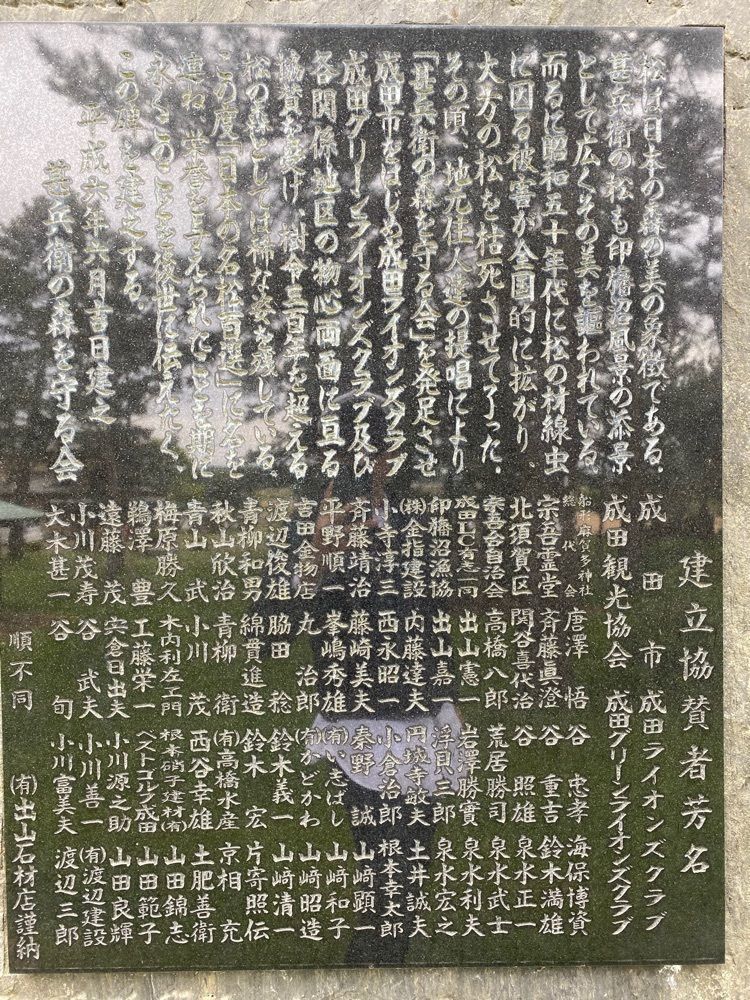 松は日本の森の美の象徴である、
甚兵衛の松も印旛沼風景の添景
として広くその美を謳われている、
而るに昭和五十年代に松の材線虫
に因る被害が全国的に拡がり、
大方の松を枯死させて了った、
その頃、地元住人達の提唱により
「甚兵衛の森を守る会」を発足させ
成田市をはじめ成田ライオンズクラブ
成田グリーンライオンズクラブ及び
各関係地区の物心両面に亘る
協賛を受け、樹令三百年を超える
松の森としては稀な姿を残している、
この度「日本の名松百選」に名を
連ね、栄誉を与えられたことを期に
永くこのことを後世に伝えたく、
この碑を建之する、
平成六年六月吉日建之
甚兵衛の森を守る会
建立協賛者芳名
成田市 成田ライオンズクラブ
成田観光協会 成田グリーンライオンズクラブ
船形麻賀多神社総代会 唐澤悟 谷忠孝 海保博資
宗吾霊堂 斉藤眞澄 谷重吉 鈴木満雄
北須賀区 関谷喜代治 谷照雄 泉水正一
宗吾台自治会 高橋八郎 荒居勝司 泉水武士
成田LC有志一同 出山憲一 岩澤勝實 泉水利夫
印旛沼漁協 出山嘉一 浮貝三郎 泉水宏之
(株)金指建設 内藤達夫 円城寺敏夫 土井誠夫
小寺淳三 西永昭一 小倉治郎 根本幸太郎
斉藤靖治 藤崎美夫 秦野誠 山﨑顕一
平野順一 峯嶋秀雄 (有)いしばし 山﨑和子
吉田金物店 丸治郎 (有)かどかわ 山﨑昭造
渡辺俊雄 脇田稔 鈴木義一 山﨑清一
青柳和男 綿貫進造 鈴木宏 片寄照伝
秋山欣治 青柳衛 (有)高橋水産 京相充
青山武 小川茂 西谷幸雄 土肥善衛
梅原勝久 木内利左エ門 根本硝子建材(有) 山田錦志
鵜澤豊 工藤栄一 ベストゴルフ成田 山田範子
遠藤茂 宍倉日出夫 小川源之助 山田良輝
小川茂寿 谷武夫 小川善一 (有)渡辺建設
大木甚一 谷旬 小川富美夫 渡辺三郎
順不同 (有)出山石材店謹納